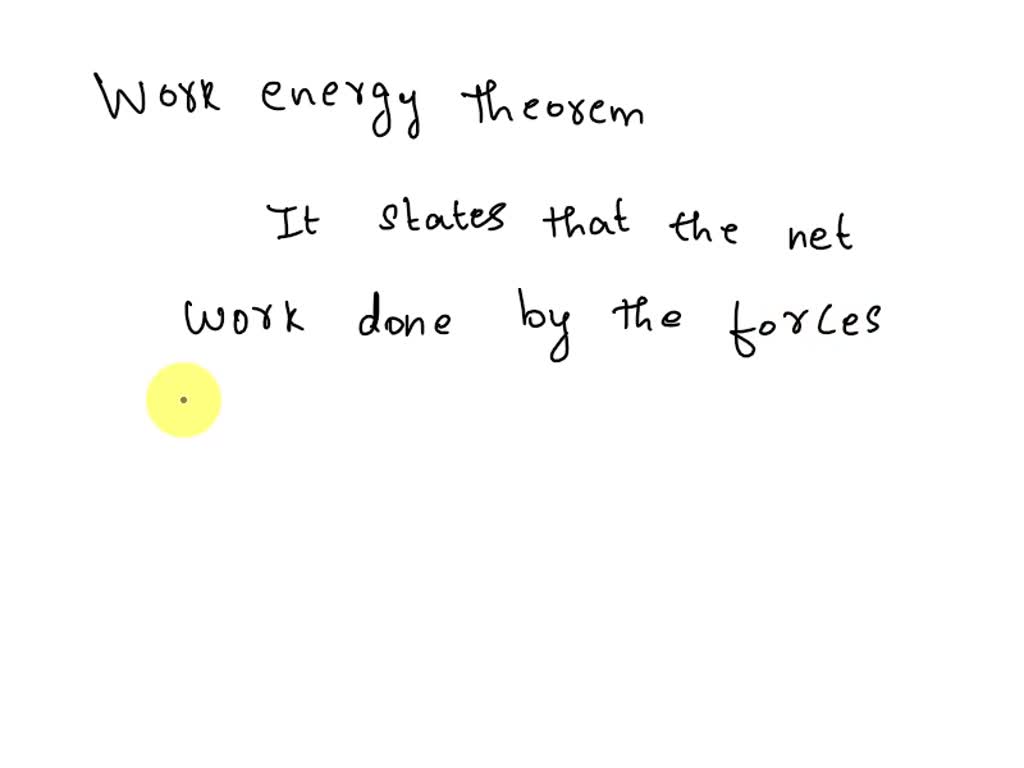 Work energy theorem
It states that the net
work done by the forces